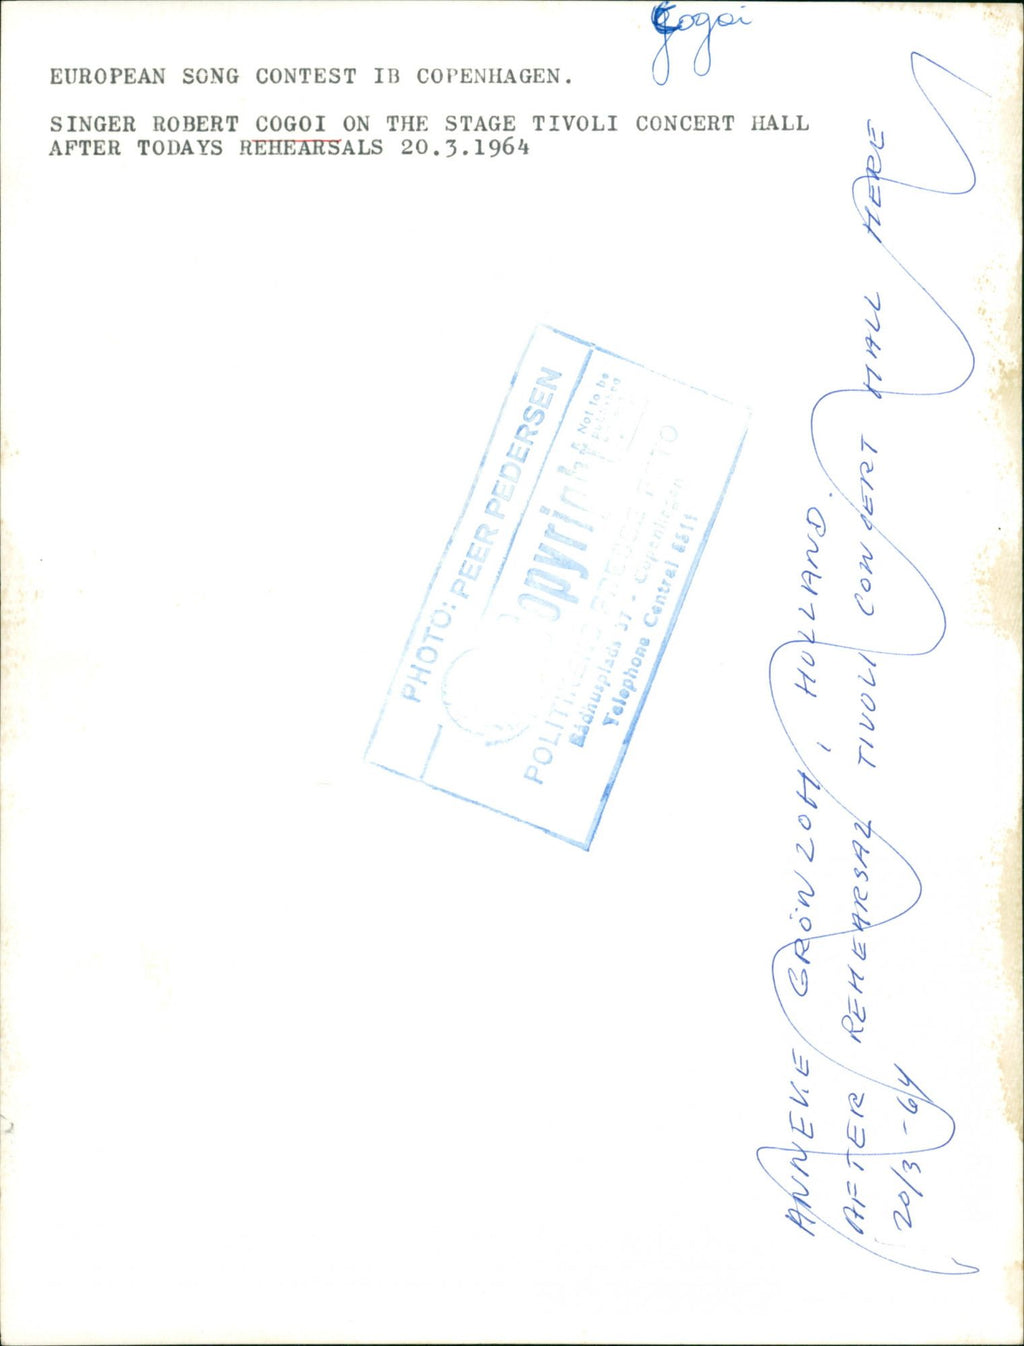 Cogoi
EUROPEAN SONG CONTEST IB COPENHAGEN.
SINGER ROBERT COGOI ON THE STAGE TIVOLI CONCERT HALL
AFTER TODAYS REHEARSALS 20.3.1964
PHOTO: PEER PEDERSEN
Copyright
Not to be
POLITIKENS PRESSE FOTO
Rådhusplads 37 - Copenhagen
Telephone Central 8511
ANNEKE GRÖNLOH, HOLLAND.
AFTER REHEARSAL TIVOLI CONCERT HALL HERE
20/3-64